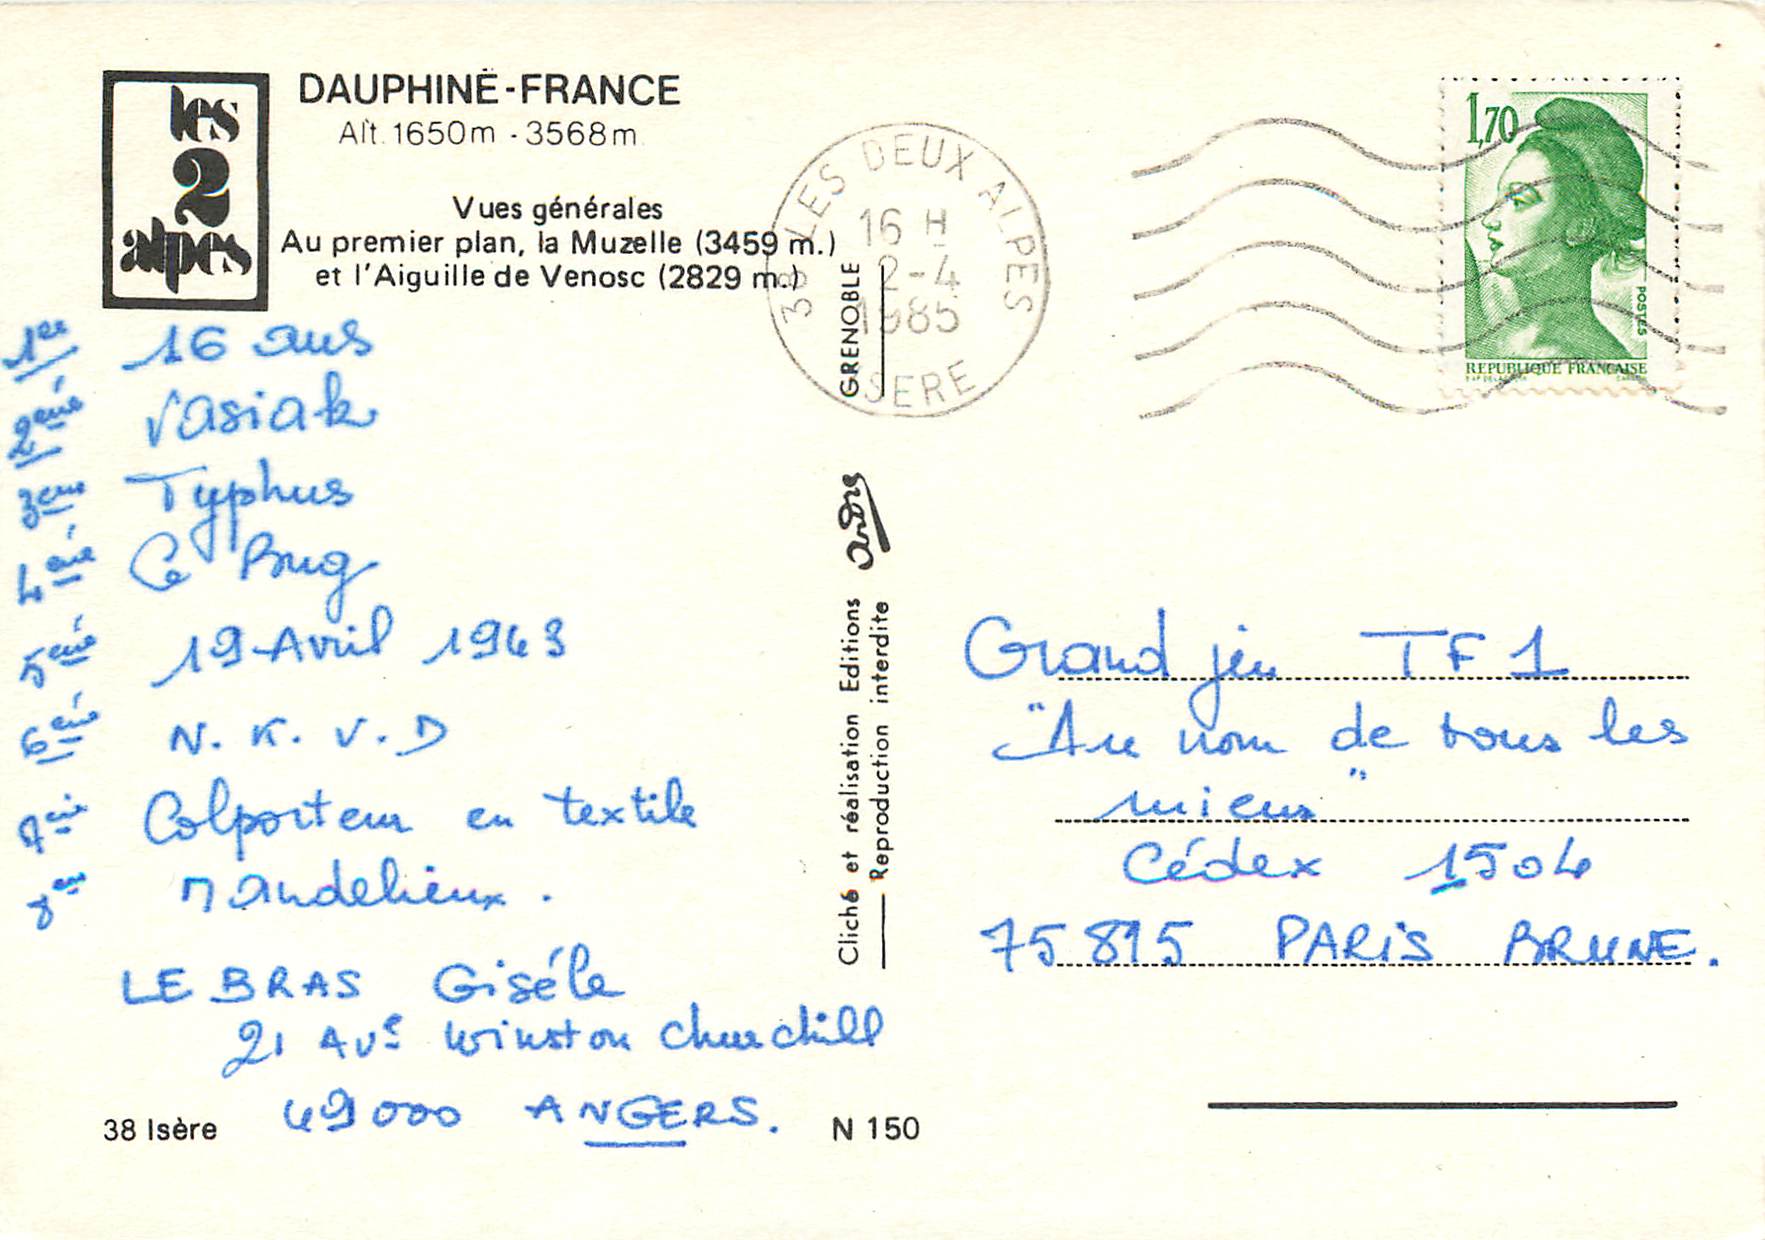 les
2
alpes
DAUPHINÉ-FRANCE
Alt. 1650m - 3568m
Vues générales
Au premier plan, la Muzelle (3459 m.)
et l'Aiguille de Venosc (2829 m.)
1ere 16 ans
2eme Vasiak
3eme Typhus
4eme Le Bug
5eme 19 Avril 1943
6eme N. K. V. D
7eme Colporteur en textile
8eme Mandelieux.
LE BRAS Giséle
21 Ave Winston Churchill
49000 ANGERS.
38 Isère
N 150
GRENOBLE
André
Cliché et réalisation Editions
Reproduction interdite
38 LES DEUX ALPES
16 H
2-4
1985
ISERE
1,70
POSTES
REPUBLIQUE FRANÇAISE
Grand jeu TF1
"Au nom de tous les
miens"
Cédex 1504
75895 PARIS BRUNE.